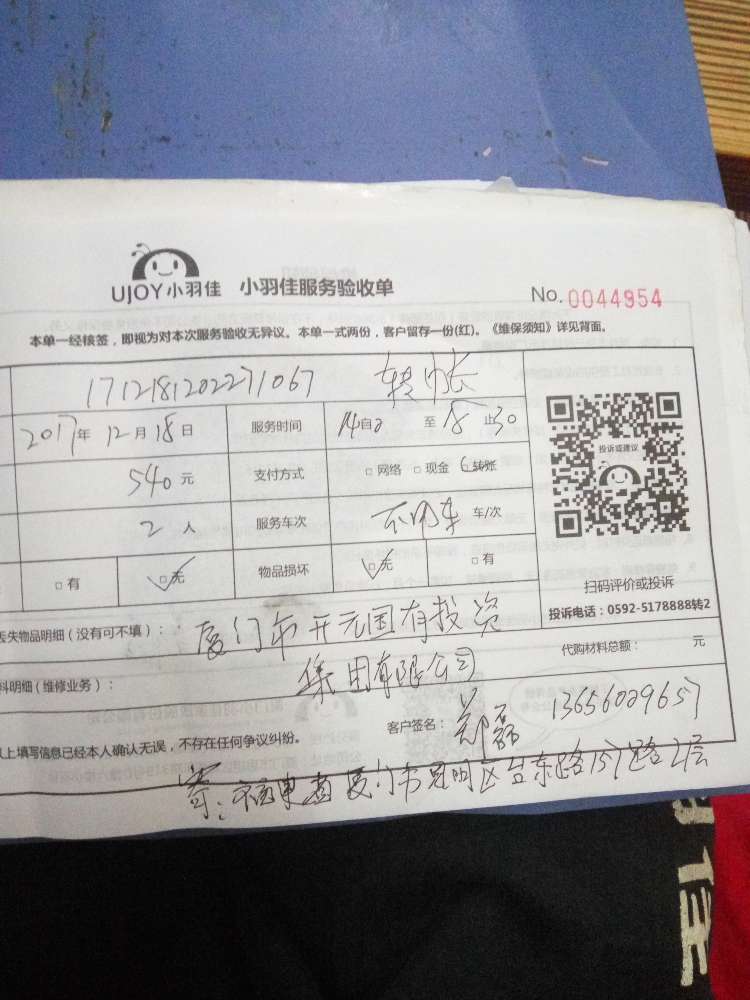 UJOY小羽佳 小羽佳服务验收单 No. 0044954
本单一经核签，即视为对本次服务验收无异议。本单一式两份，客户留存一份(红)。《维保须知》详见背面。
1712181202271067 转帐
2017年 12月 18日 服务时间 14自 至 18止30
投诉或建议
540元 支付方式 □网络 □现金 转账
2人 服务车次 不用车 车/次
□有 □无 物品损坏 □无 □有
扫码评价或投诉
投诉电话：0592-5178888转2
丢失物品明细（没有可不填）： 厦门市开元国有投资
集团有限公司
代购材料总额： 元
料明细（维修业务）：
客户签名： 郑磊 13656029657
以上填写信息已经本人确认无误，不存在任何争议纠纷。
寄：福建省厦门市思明区台东路157路2层